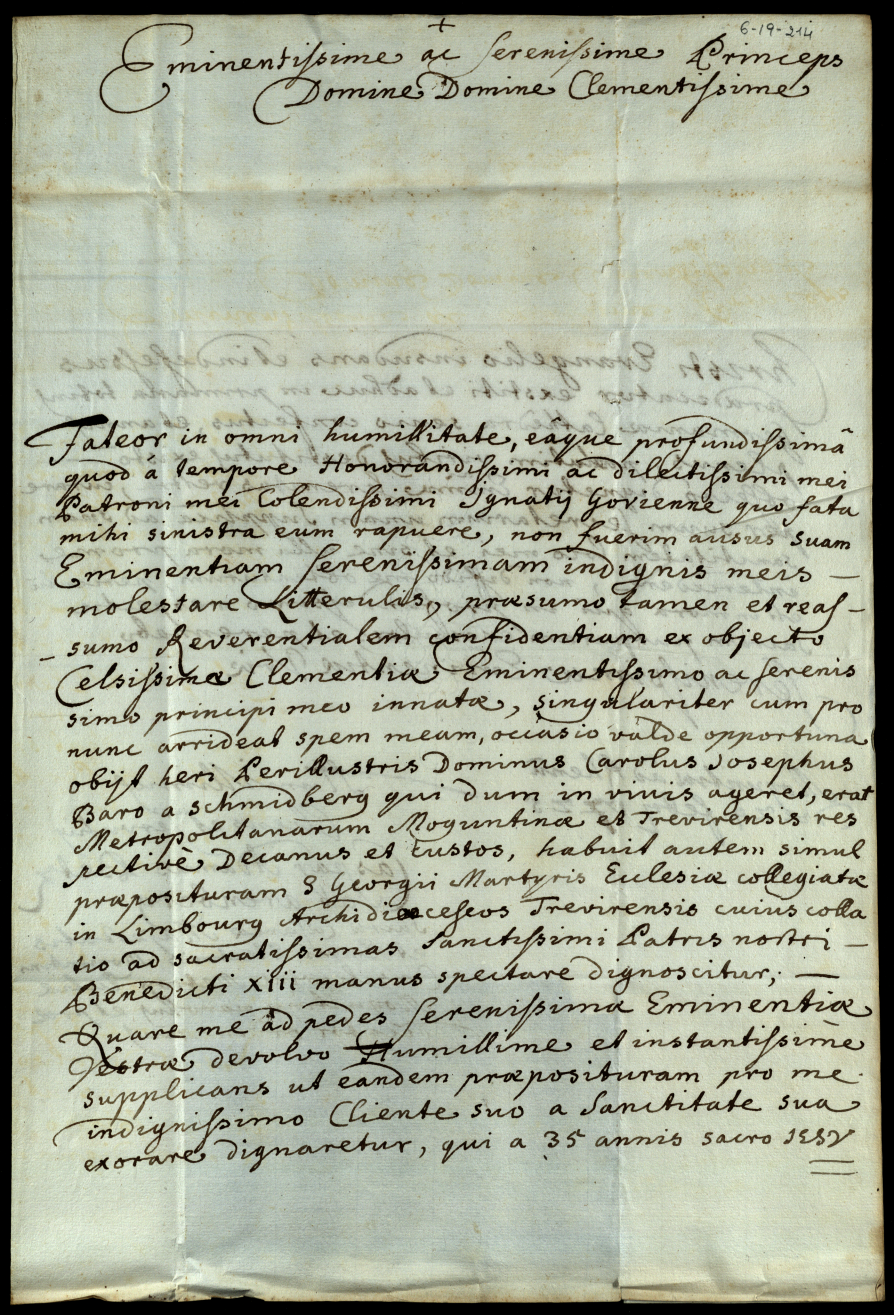 6-19-214
+
Eminentissime ac Serenissime Princeps
Domine Domine Clementissime
Fateor in omni humillitate, eâque profundissimâ
quod á tempore Honorandissimi ac dilectissimi mei
Patroni mei Colendissimi Ignatij Govienne quo fata
mihi sinistra eum rapuere, non fuerim ausus suam
Eminentiam Serenissimam indignis meis —
molestare Litterulis, præsumo tamen et reas-
- sumo Reverentialem confidentiam ex objecto
Celsissimæ Clementiæ Eminentissimo ac Serenis
simo principi meo innatæ, singulariter cum pro
nunc arrideat spem meam, occasio valde opportuna
obijt heri Perillustris Dominus Carolus Josephus
Baro a Schmidberg qui dum in vivis ageret, erat
Metropolitanarum Moguntinæ et Trevirensis res
pectivè Decanus et Custos, habuit autem simul
præposituram S Georgii Martyris Ecclesiæ collegiatæ
in Limbourg Archidiœceseos Trevirensis cuius colla
tio ad sacratissimas Sanctissimi Patris nostri —
Benedicti xiii manus spectare dignoscitur; —
Quare me ad pedes Serenissimæ Eminentiæ
Vestræ devolvo Humillime et instantissime
supplicans ut eandem præposituram pro me
indignissimo Cliente suo a Sanctitate sua
exorare dignaretur, qui a 35 annis sacro IESV